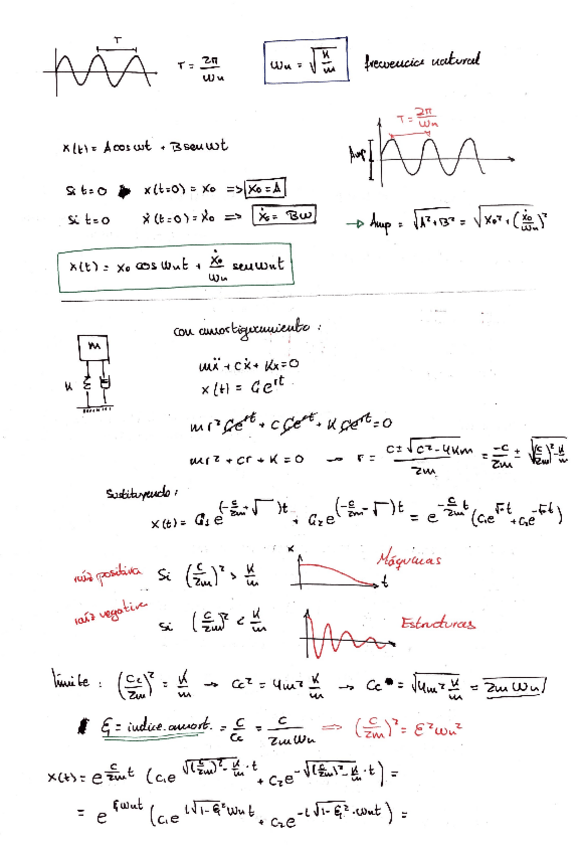 T
T = 2π/ωn   ωn = √(K/m)   frecuencia natural
T = 2π/ωn
Amp
x(t) = A cos ωt + B sen ωt
Si t=0   x(t=0) = x₀ => x₀ = A
Si t=0   ẋ(t=0) = ẋ₀ => ẋ₀ = Bω
→ Amp = √(A²+B²) = √(x₀² + (ẋ₀/ωn)²)
x(t) = x₀ cos ωnt + ẋ₀/ωn sen ωnt
con amortiguamiento :
m
K
mẍ + cẋ + Kx = 0
x(t) = G e^(rt)
mr² Ge^(rt) + c Ge^(rt) + K Ge^(rt) = 0
mr² + cr + K = 0 → r = (c ± √(c² - 4Km))/2m = -c/2m ± √((c/2m)² - K/m)
Sustituyendo :
x(t) = G₁ e^((-c/2m + √ )t) + G₂ e^((-c/2m - √ )t) = e^(-c/2m t) (c₁e^(√ t) + c₂e^(-√ t))
raíz positiva   Si (c/2m)² > K/m   x   t   Máquinas
raíz negativa   Si (c/2m)² < K/m   Estructuras
límite : (Cc/2m)² = K/m → Cc² = 4m² K/m → Cc = √(4m² K/m) = 2m ωn
ξ = indice.amort. = c/Cc = c/2mωn => (c/2m)² = ξ²ωn²
x(t) = e^(c/2m t) (c₁e^(√((c/2m)² - K/m) · t) + c₂e^(-√((c/2m)² - K/m) · t)) =
= e^(ξωnt) (c₁e^(i√(1-ξ²) ωnt) + c₂e^(-i√(1-ξ²) · ωnt)) =